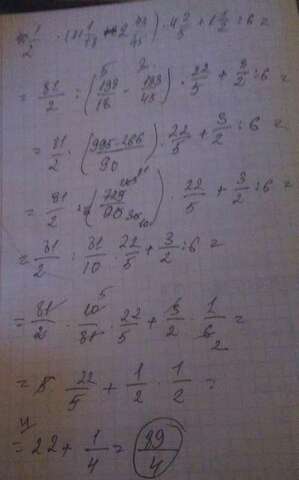 = 81/2 : (199/18 - 133/45) · 22/5 + 3/2 : 6 =
= 81/2 : (995-266/90) · 22/5 + 3/2 : 6 =
= 81/2 : (729/90) · 22/5 + 3/2 : 6 =
= 81/2 : 81/10 · 22/5 + 3/2 : 6 =
= 81/2 · 10/81 · 22/5 + 3/2 · 1/6 =
= 5 · 22/5 + 1/2 · 1/2 =
= 22 + 1/4 = 89/4